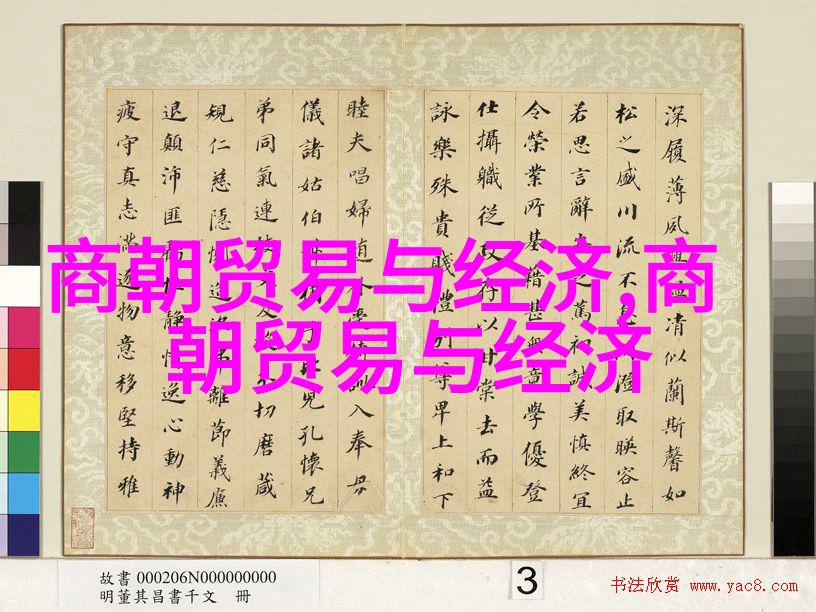 商朝贸易与经济,商
朝贸易与经济
深履薄夙興溫清似蘭斯馨如
松之盛川流不澄取暎容止
若思言辭篤初誠美慎終宜
令榮業所基籍甚無竟學優登
仕攝職從政存以甘棠去而益
詠樂殊貴賤禮別尊卑上和下
睦夫唱婦隨訓入奉母
儀諸姑伯比兒孔懷兄
弟同氣連切磨葴
規仁慈隱造離節義廉
退顛沛匪靜情逸心動神
疲守真志逐物意移堅持雅
故書 000206N000000000
明董其昌書千文 冊
3
书法欣赏 www.yac8.com